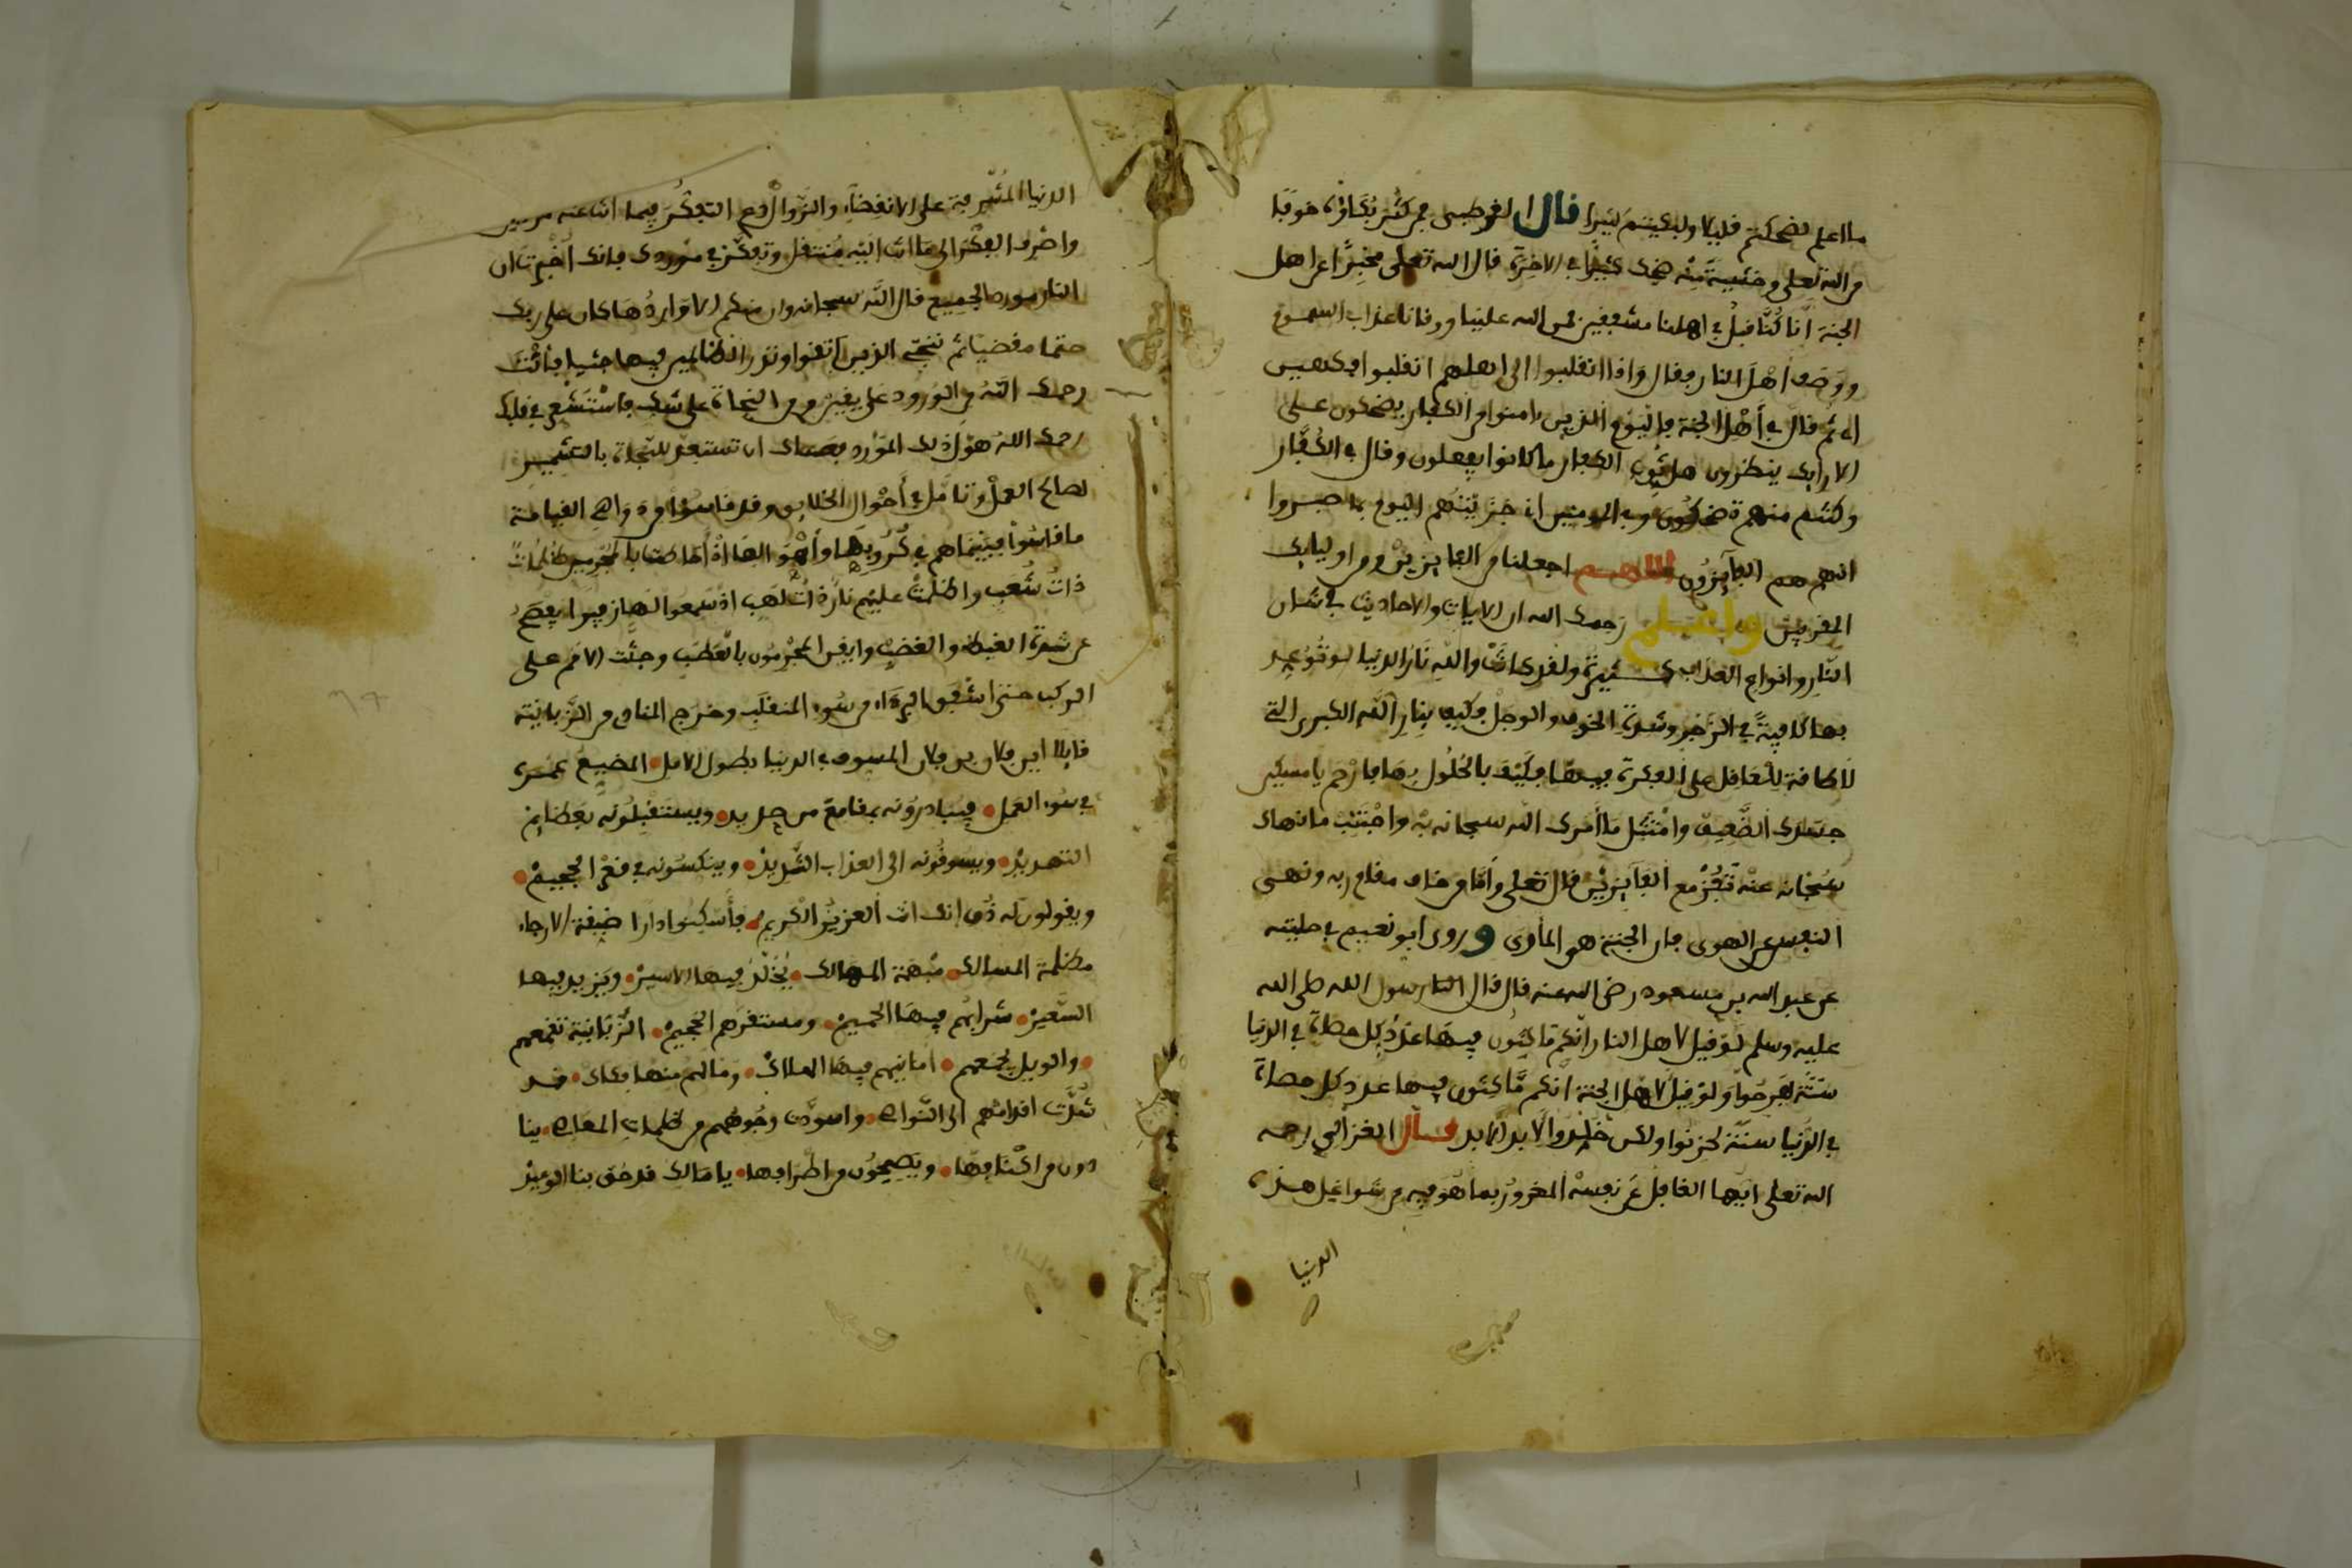 ما اعلم لضحكتم قليلا ولبكيتم كثيرا قال القرطبي فمن كثر بكاؤه خوفا
من الله تعلى وخشية منه ضحك كثيرا في الاخرة قال الله تعلى مخبرا عن اهل
الجنة انا كنا قبل في اهلنا مشفقين فمن الله علينا ووقانا عذاب السموم
ووصف أهل النار فقال واذا انقلبوا الى اهلهم انقلبوا فكهين
الى ثم قال في أهل الجنة فاليوم الذين ءامنوا من الكفار يضحكون على
الارايك ينظرون هل ثوب الكفار ما كانوا يفعلون وقال في الكفار
وكنتم منهم تضحكون وفي المومنين اني جزيتهم اليوم بما صبروا
انهم هم الفآيزون اللهم اجعلنا من الفايزين ومن اوليايك
المقربين واعلم رحمك الله ان الايات والاحاديث في شان
النار وانواع العذاب كثيرة ولقد كانت والله نار الدنيا لو توعد
بها كافية في الزجر وشدة الخوف والوجل فكيف بنار الله الكبرى التي
لا طاقة للغافل على الفكرة فيها فكيف بالحلول بها فارحم يا مسكين
جسدك الضعيف وامتثل ما أمرك الله سبحانه به واجتنب ما نهاك
سبحانه عنه تفز مع الفآيزين قال تعلى وأما من خاف مقام ربه ونهى
النفس عن الهوى فان الجنة هي المأوى وروى ابو نعيم في حليته
عن عبد الله بن مسعود رضي الله عنه قال قال لنا رسول الله صلى الله
عليه وسلم لو قيل لاهل النار انكم ماكثون فيها عدد كل حصاة في الدنيا
سنة لفرحوا ولو قيل لاهل الجنة انكم ماكثون فيها عدد كل حصاة
في الدنيا سنة لحزنوا ولكن خلدوا لابد الابد قال الغزالي رحمه
الله تعلى ايها الغافل عن نفسه المغرور بما هو فيه من شواغل هذه
الدنيا
الدنيا المشرفة على الانقضاء والزوال دع التفكر فيما انت عنه
واصرف الفكر الى ما انت اليه منتقل وتفكر في موردك فانك أخبرت ان
النار مورد الجميع قال الله سبحانه وان منكم الا واردها كان على ربك
حتما مقضيا ثم ننجي الذين اتقوا ونذر الظالمين فيها جثيا فانت
رحمك الله من الورود على يقين ومن النجاة على شك فاستشعر في قلبك
رحمك الله هول ذلك المورد فعساك ان تستعد للنجاة بالتشمير
لصالح العمل وتأمل في أحوال الخلايق وقد قاسوا من دواهي القيامة
ما قاسوا فبينما هم في كروبها وأهوالها اذ أحاطت بالمجرمين ظلمات
ذات شعب واظلت عليهم نار ذات لهب اذ سمعوا لها زفيرا يفصح
عن شدة الغيظ والغضب وايقن المجرمون بالعطب وجثت الامم على
الركب حتى اشفق البرءاء من سوء المنقلب وخرج المنادي من الزبانية
قايلا اين فلان بن فلان المسوف في الدنيا بطول الامل المضيع عمره
في سوء العمل فيبادرونه بمقامع من حديد ويستقبلونه بعظايم
التهديد ويسوقونه الى العذاب الشديد وينكسونه في قعر الجحيم
ويقولون له ذق انك انت العزيز الكريم فأسكنوا دارا ضيقة الارجاء
مظلمة المسالك مبهمة المهالك يخلد فيها الاسير ويزيد فيها
السعير شرابهم فيها الحميم ومستقرهم الجحيم الزبانية تقمعهم
والويل يجمعهم امانيهم فيها الهلاك وما لهم منها فكاك قد
شدت اقدامهم الى النواصي واسودت وجوههم من ظلمات المعاصي ينا
دون من اكنافها ويصيحون من اطرافها يا مالك قد حق بنا الوعيد